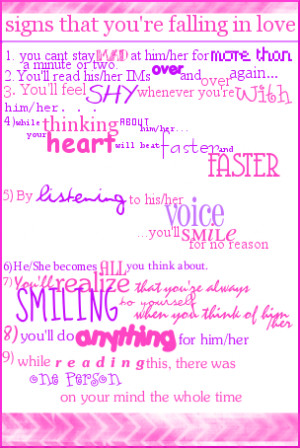 signs that you're falling in love
1. you cant stay MAD at him/her for more than
a minute or two.
2. You'll read his/her IMs over and over again...
3. You'll feel SHY whenever you're with
him/her...
4) while thinking ABOUT him/her...
your heart will beat faster and
FASTER
5) By listening to his/her
voice
...you'll smile
for no reason
6)He/She becomes ALL you think about.
7)You'll realize that you're always
SMILING to yourself
when you think of him/her
8) you'll do anything for him/her
9) while reading this, there was
one person
on your mind the whole time